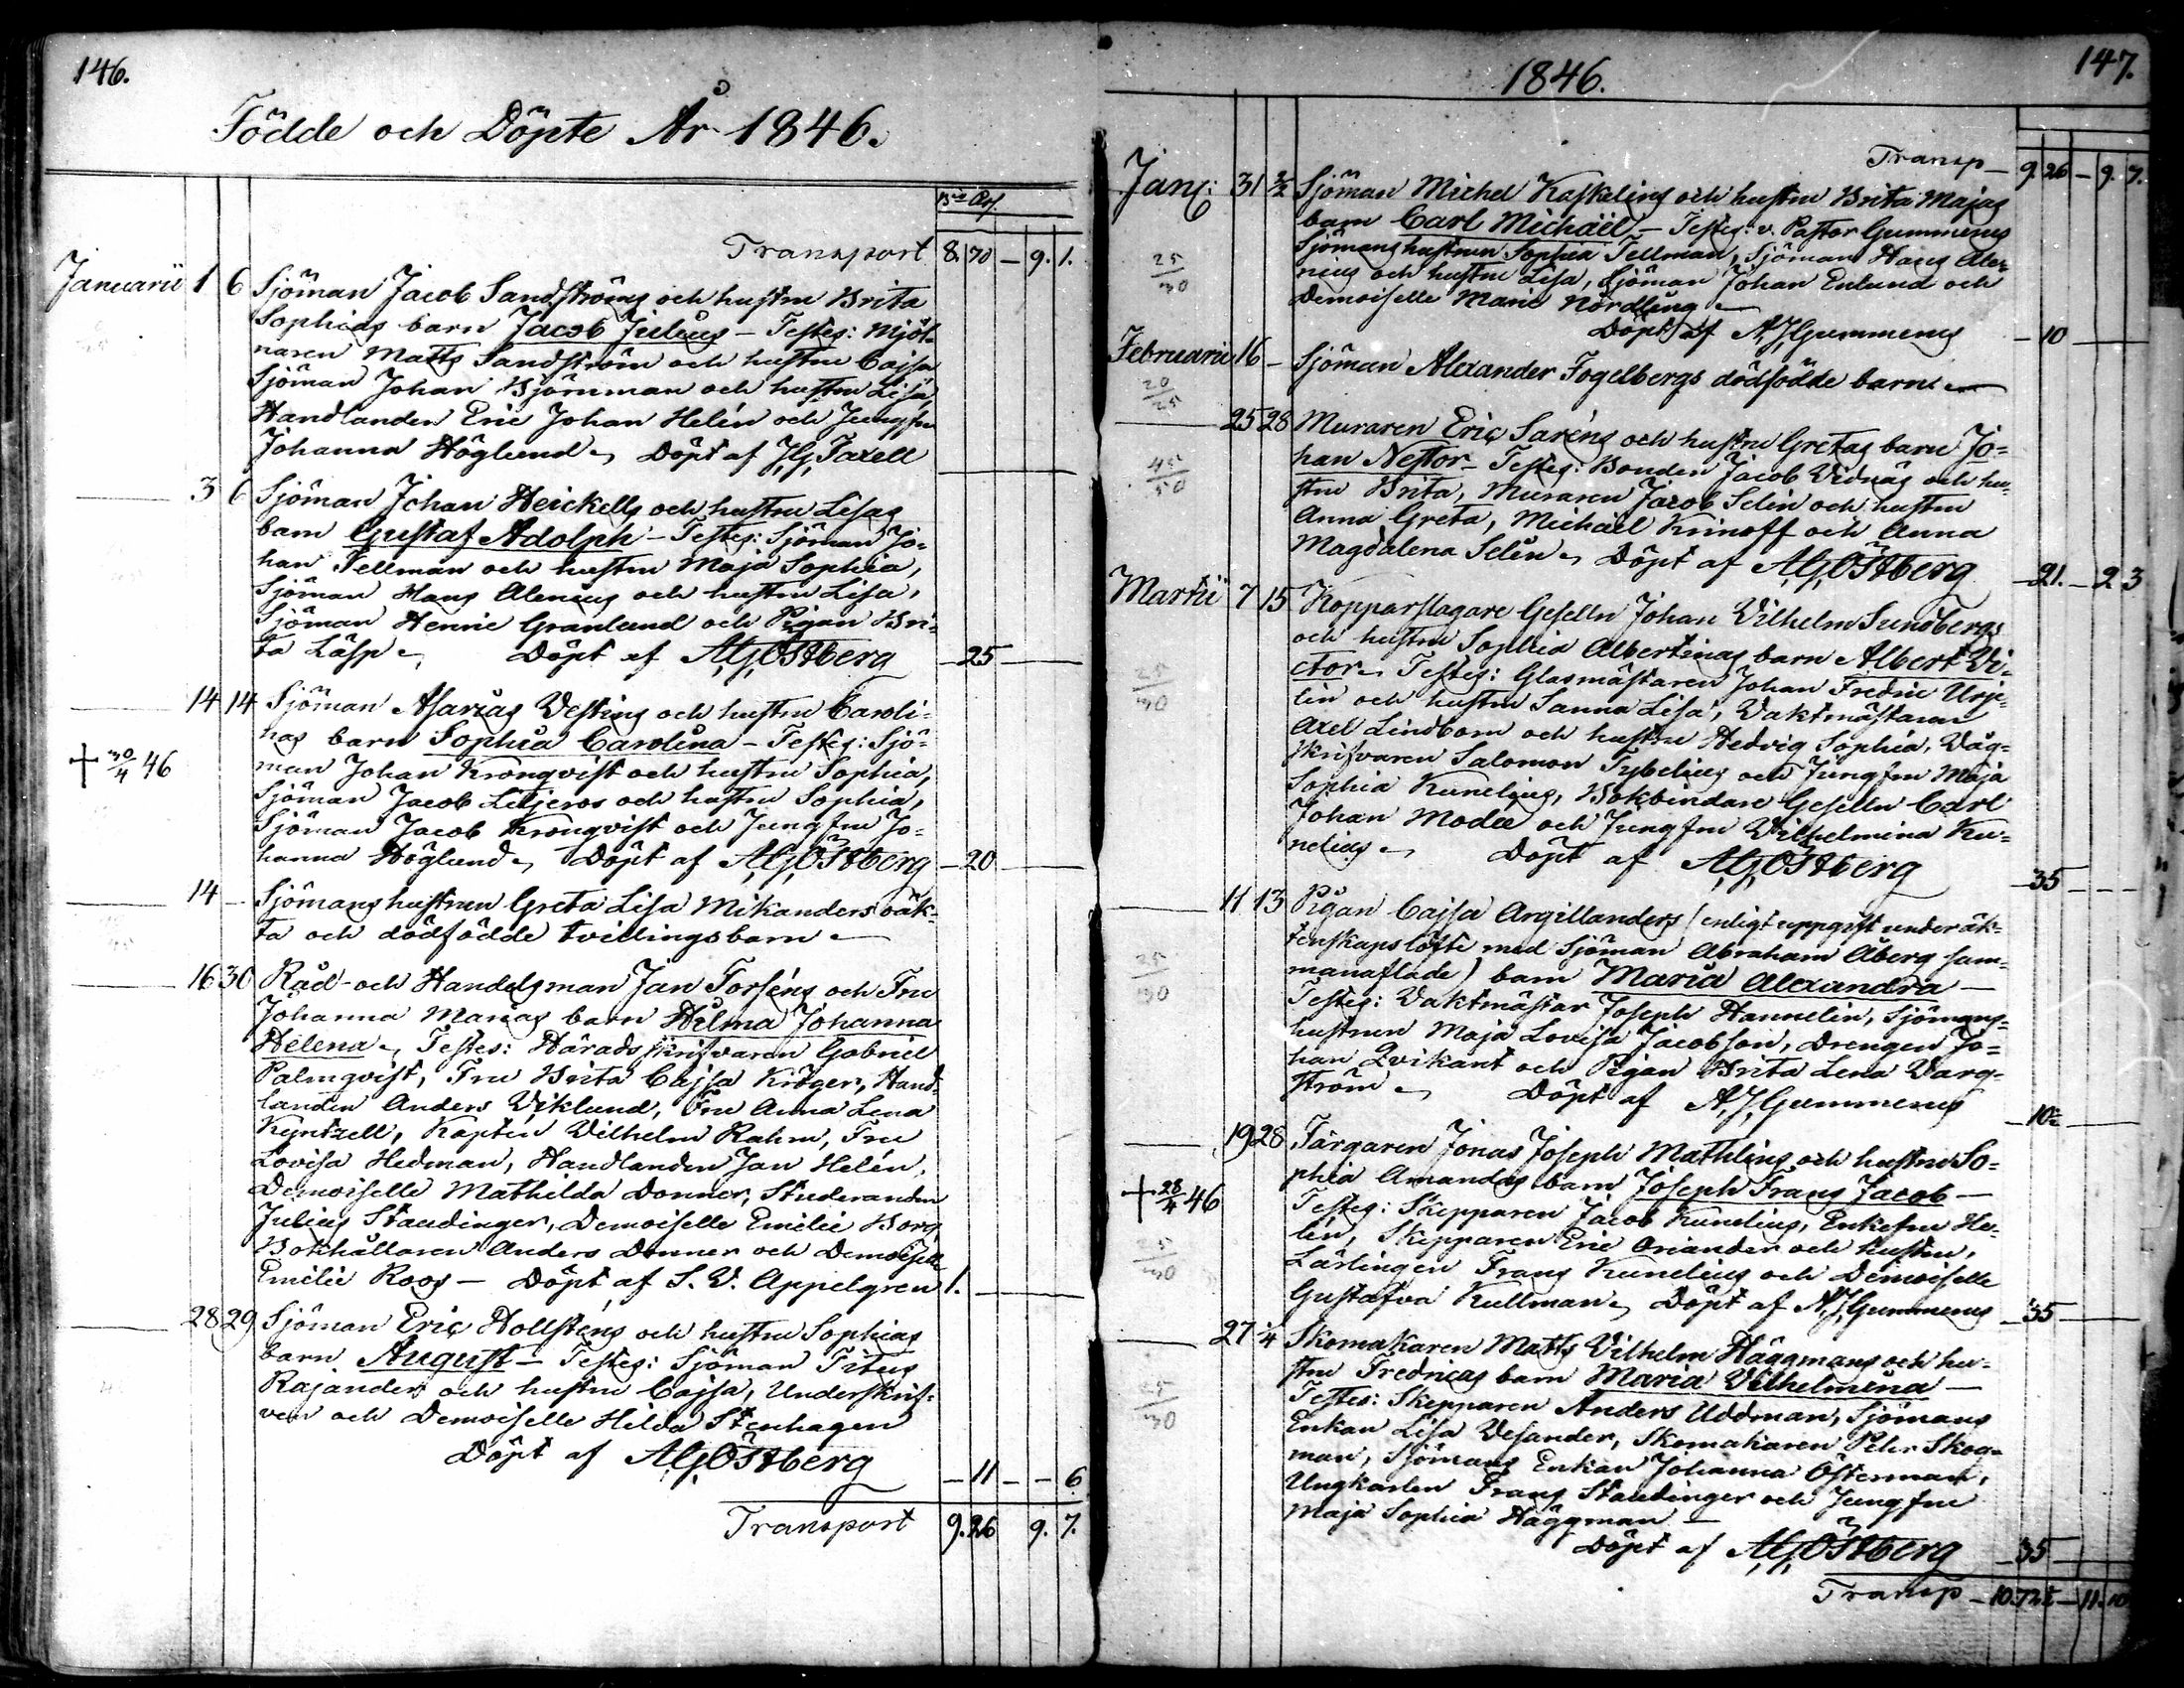 146.
Födde och Döpte År 1846.
Transport 8. 70 — 9. 1.
Januarii 1 6 Sjöman Jacob Sandströms och hustru Brita
Sophias barn Jacob Julius — Testes: Mjöl-
naren Matts Sandström och hustru Cajsa
Sjöman Johan Björnman och hustru Lisa,
Handlanden Eric Johan Helén och Jungfru
Johanna Höglund — Döpt af J.G. Taxell
3 6 Sjöman Johan Heickells och hustru Lisas
barn Gustaf Adolph — Testes: Sjöman Jo-
han Fellman och hustru Maja Sophia,
Sjöman Hans Alenius och hustru Lisa,
Sjöman Henric Granlund och Pigan Bri-
ta Läsp — Döpt af A.G. Östberg — 25 —
14 14 Sjöman Asarias Vestings och hustru Caroli-
nas barn Sophia Carolina — Testes: Sjö-
† 30/4 46 man Johan Kronqvist och hustru Sophia,
Sjöman Jacob Liljeros och hustru Sophia,
Sjöman Jacob Kronqvist och Jungfru Jo-
hanna Höglund — Döpt af A.G. Östberg — 20 —
14 — Sjömans hustrun Greta Lisa Mikanders oäk-
ta och dödfödde tvillingsbarn —
16 30 Råd- och Handelsman Jan Forséns och Fru
Johanna Marias barn Hilma Johanna
Helena — Testes: Häradsskrifvaren Gabriel
Palmqvist, Fru Brita Cajsa Kröger, Hand-
landen Anders Viklund, Fru Anna Lena
Kyntzell, Kapten Vilhelm Rahm, Fru
Lovisa Hedman, Handlanden Jan Helén,
Demoiselle Mathilda Donner, Studeranden
Julius Staudinger, Demoiselle Emilie Borg,
Bokhållaren Anders Donner och Demoiselle
Emilie Roos — Döpt af S. V. Appelgren 1. —
28 29 Sjöman Eric Hollsténs och hustru Sophias
barn August — Testes: Sjöman Titus
Rajander och hustru Cajsa, Underskrif-
ven och Demoiselle Hilda Stenhagen
Döpt af A.G. Östberg — 11 — — 6
Transport 9. 26 9. 7.
147.
1846.
Transp — 9. 26 — 9. 7.
Janu: 31 2/2 Sjöman Michel Kaskelins och hustru Brita Majas
barn Carl Michaël — Testes: v. Pastor Gummerus
25/30 Sjömans hustrun Sophia Fellman, Sjöman Hans Ale-
nius och hustru Lisa, Sjöman Johan Enlund och
Demoiselle Marie Nordlung —
Döpt af A.J. Gummerus — 10 —
Februarii 16 — Sjöman Alexander Fogelbergs dödfödde barn —
20/25
25 28 Muraren Eric Saréns och hustru Gretas barn Jo-
45/50 han Nestor — Testes: Bonden Jacob Vidnäs och hu-
stru Brita, Muraren Jacob Selin och hustru
Anna Greta, Michaël Krinoff och Anna
Magdalena Selin — Döpt af A.G. Östberg — 21. — 2 3
Martii 7 15 Kopparslagare Geselln Johan Vilhelm Sundbergs
och hustru Sophia Albertinas barn Albert Vi-
25/30 ctor — Testes: Glasmästaren Johan Fredric Urpe-
lin och hustru Sanna Lisa, Vaktmästaren
Axel Lindbom och hustru Hedvig Sophia, Våg-
skrifvaren Salomon Sybelius och Jungfru Maja
Sophia Kunelius, Bokbindare Gesellen Carl
Johan Modee och Jungfru Vilhelmina Ku-
nelius — Döpt af A.G. Östberg — 35 —
11 13 Pigan Cajsa Argillanders (enligt uppgift under äk-
tenskapslöfte med Sjöman Abraham Åberg sam-
25/30 manaflade) barn Maria Alexandra —
Testes: Vaktmästar Joseph Hannelin, Sjömans-
hustrun Maja Lovisa Jacobson, Drengen Jo-
han Qvikant och Pigan Brita Lena Varg-
ström — Döpt af A.J. Gummerus — 10 —
19 28 Färgaren Jonas Joseph Mathlins och hustru So-
phia Amandas barn Joseph Frans Jacob —
† 28/4 46 Testes: Skepparen Jacob Kunelius, Enkefru He-
lén, Skepparen Eric Oriander och hustru,
25/30 Lärlingen Frans Kunelius och Demoiselle
Gustafva Kullman — Döpt af A.J. Gummerus — 35 —
27 /4 Skomakaren Matts Vilhelm Häggmans och hu-
stru Fredricas barn Maria Vilhelmina —
25/30 Testes: Skepparen Anders Uddman, Sjömans
Enkan Lisa Vesander, Skomakaren Petter Skog-
man, Sjömans Enkan Johanna Österman,
Ungkarlen Frans Staudinger och Jungfru
Maja Sophia Häggman —
Döpt af A.G. Östberg — 35 —
Transp — 10. 72 — 11. 10